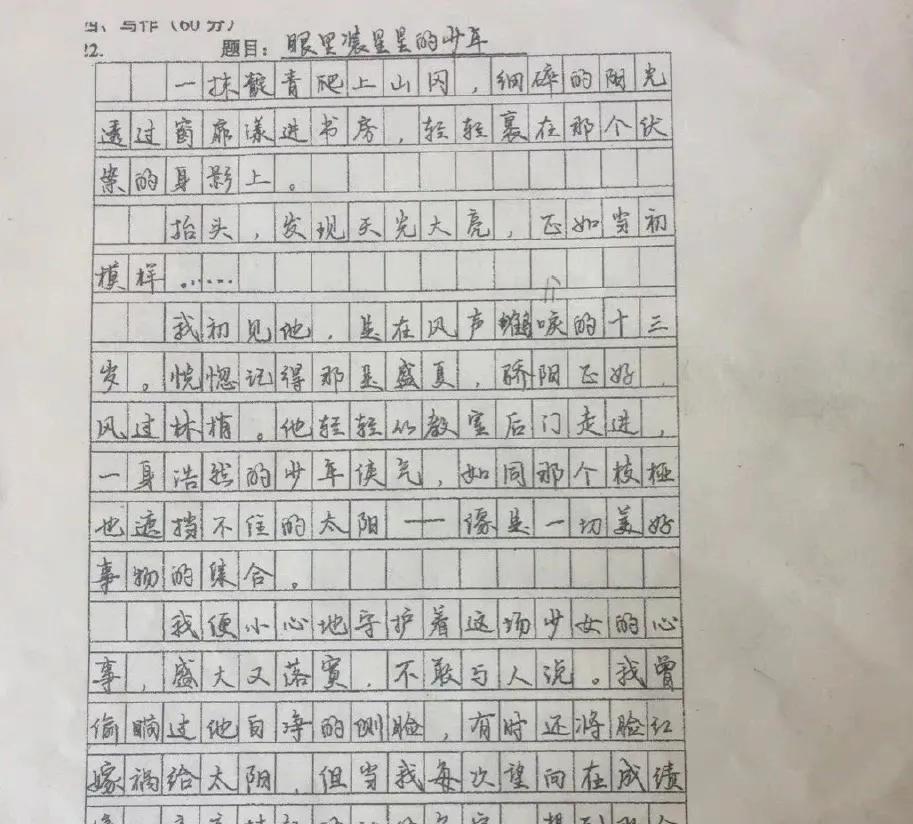 四、写作（60分）
22. 题目：眼里装星星的少年
一抹靛青爬上山冈，细碎的阳光
透过窗扉漾进书房，轻轻裹在那个伏
案的身影上。
抬头，发现天光大亮，正如当初
模样……
我初见他，是在风声鹤唳的十三
岁。恍惚记得那是盛夏，骄阳正好，
风过林梢。他轻轻从教室后门走进，
一身浩然的少年侠气，如同那个枝桠
也遮挡不住的太阳——像是一切美好
事物的集合。
我便小心地守护着这场少女的心
事，盛大又落寞，不敢与人说。我曾
偷瞄过他白净的侧脸，有时还将脸红
嫁祸给太阳，但当我每次望向在成绩